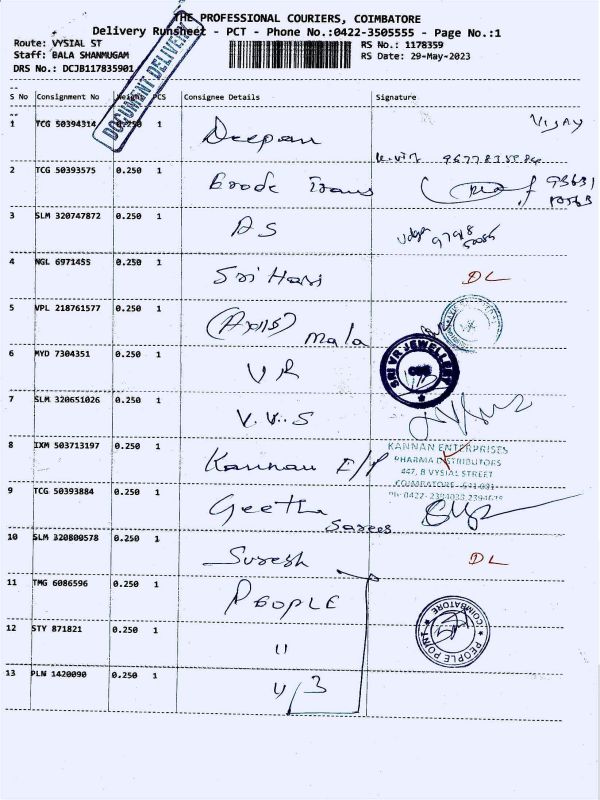 THE PROFESSIONAL COURIERS, COIMBATORE
Delivery Runsheet - PCT - Phone No.:0422-3505555 - Page No.:1
Route: VYSIAL ST
RS No.: 1178359
Staff: BALA SHANMUGAM
RS Date: 29-May-2023
DRS No.: DCJB117835901
DOCUMENT DELIVERY
S No Consignment No Weight PCS Consignee Details Signature
1 TCG 50394314 0.250 1 Deepan VIJAY
2 TCG 50393575 0.250 1 Erode Trans
3 SLM 320747872 0.250 1 A S
4 NGL 6971455 0.250 1 Sri Hari DL
5 VPL 218761577 0.250 1 mala
6 MYD 7304351 0.250 1 V R
SRI VR JEWELLERY
CBE
7 SLM 320651026 0.250 1 V.V.S
8 IXM 503713197 0.250 1 Kannan E/P
KANNAN ENTERPRISES
PHARMA DISTRIBUTORS
447, B VYSIAL STREET
COIMBATORE - 641 001
9 TCG 50393884 0.250 1 Geetha Sarees
10 SLM 320800578 0.250 1 Suresh DL
11 TMG 6086596 0.250 1 PEOPLE
PEOPLE POINT
COIMBATORE
12 STY 871821 0.250 1 "
13 PLN 1420090 0.250 1 " / 3